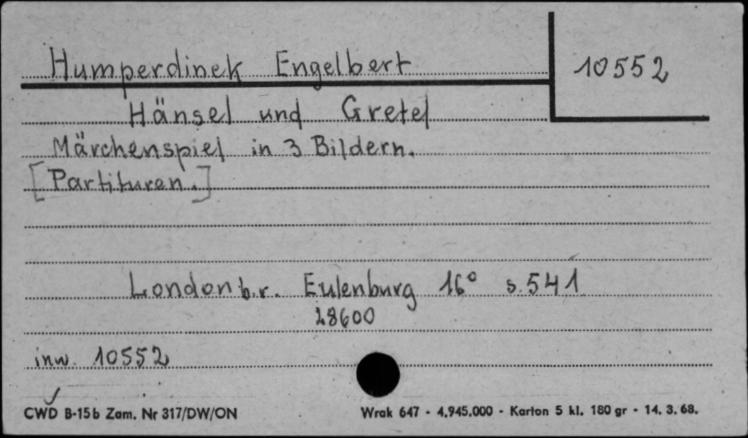 Humperdinek Engelbert
10552
Hänsel und Gretel
Märchenspiel in 3 Bildern.
[Partituren.]
London b.r. Eulenburg 16° s. 541
28600
inw. 10552
CWD B-15b Zam. Nr 317/DW/ON Wrak 647 - 4.945.000 - Karton 5 kl. 180 gr - 14. 3. 68.